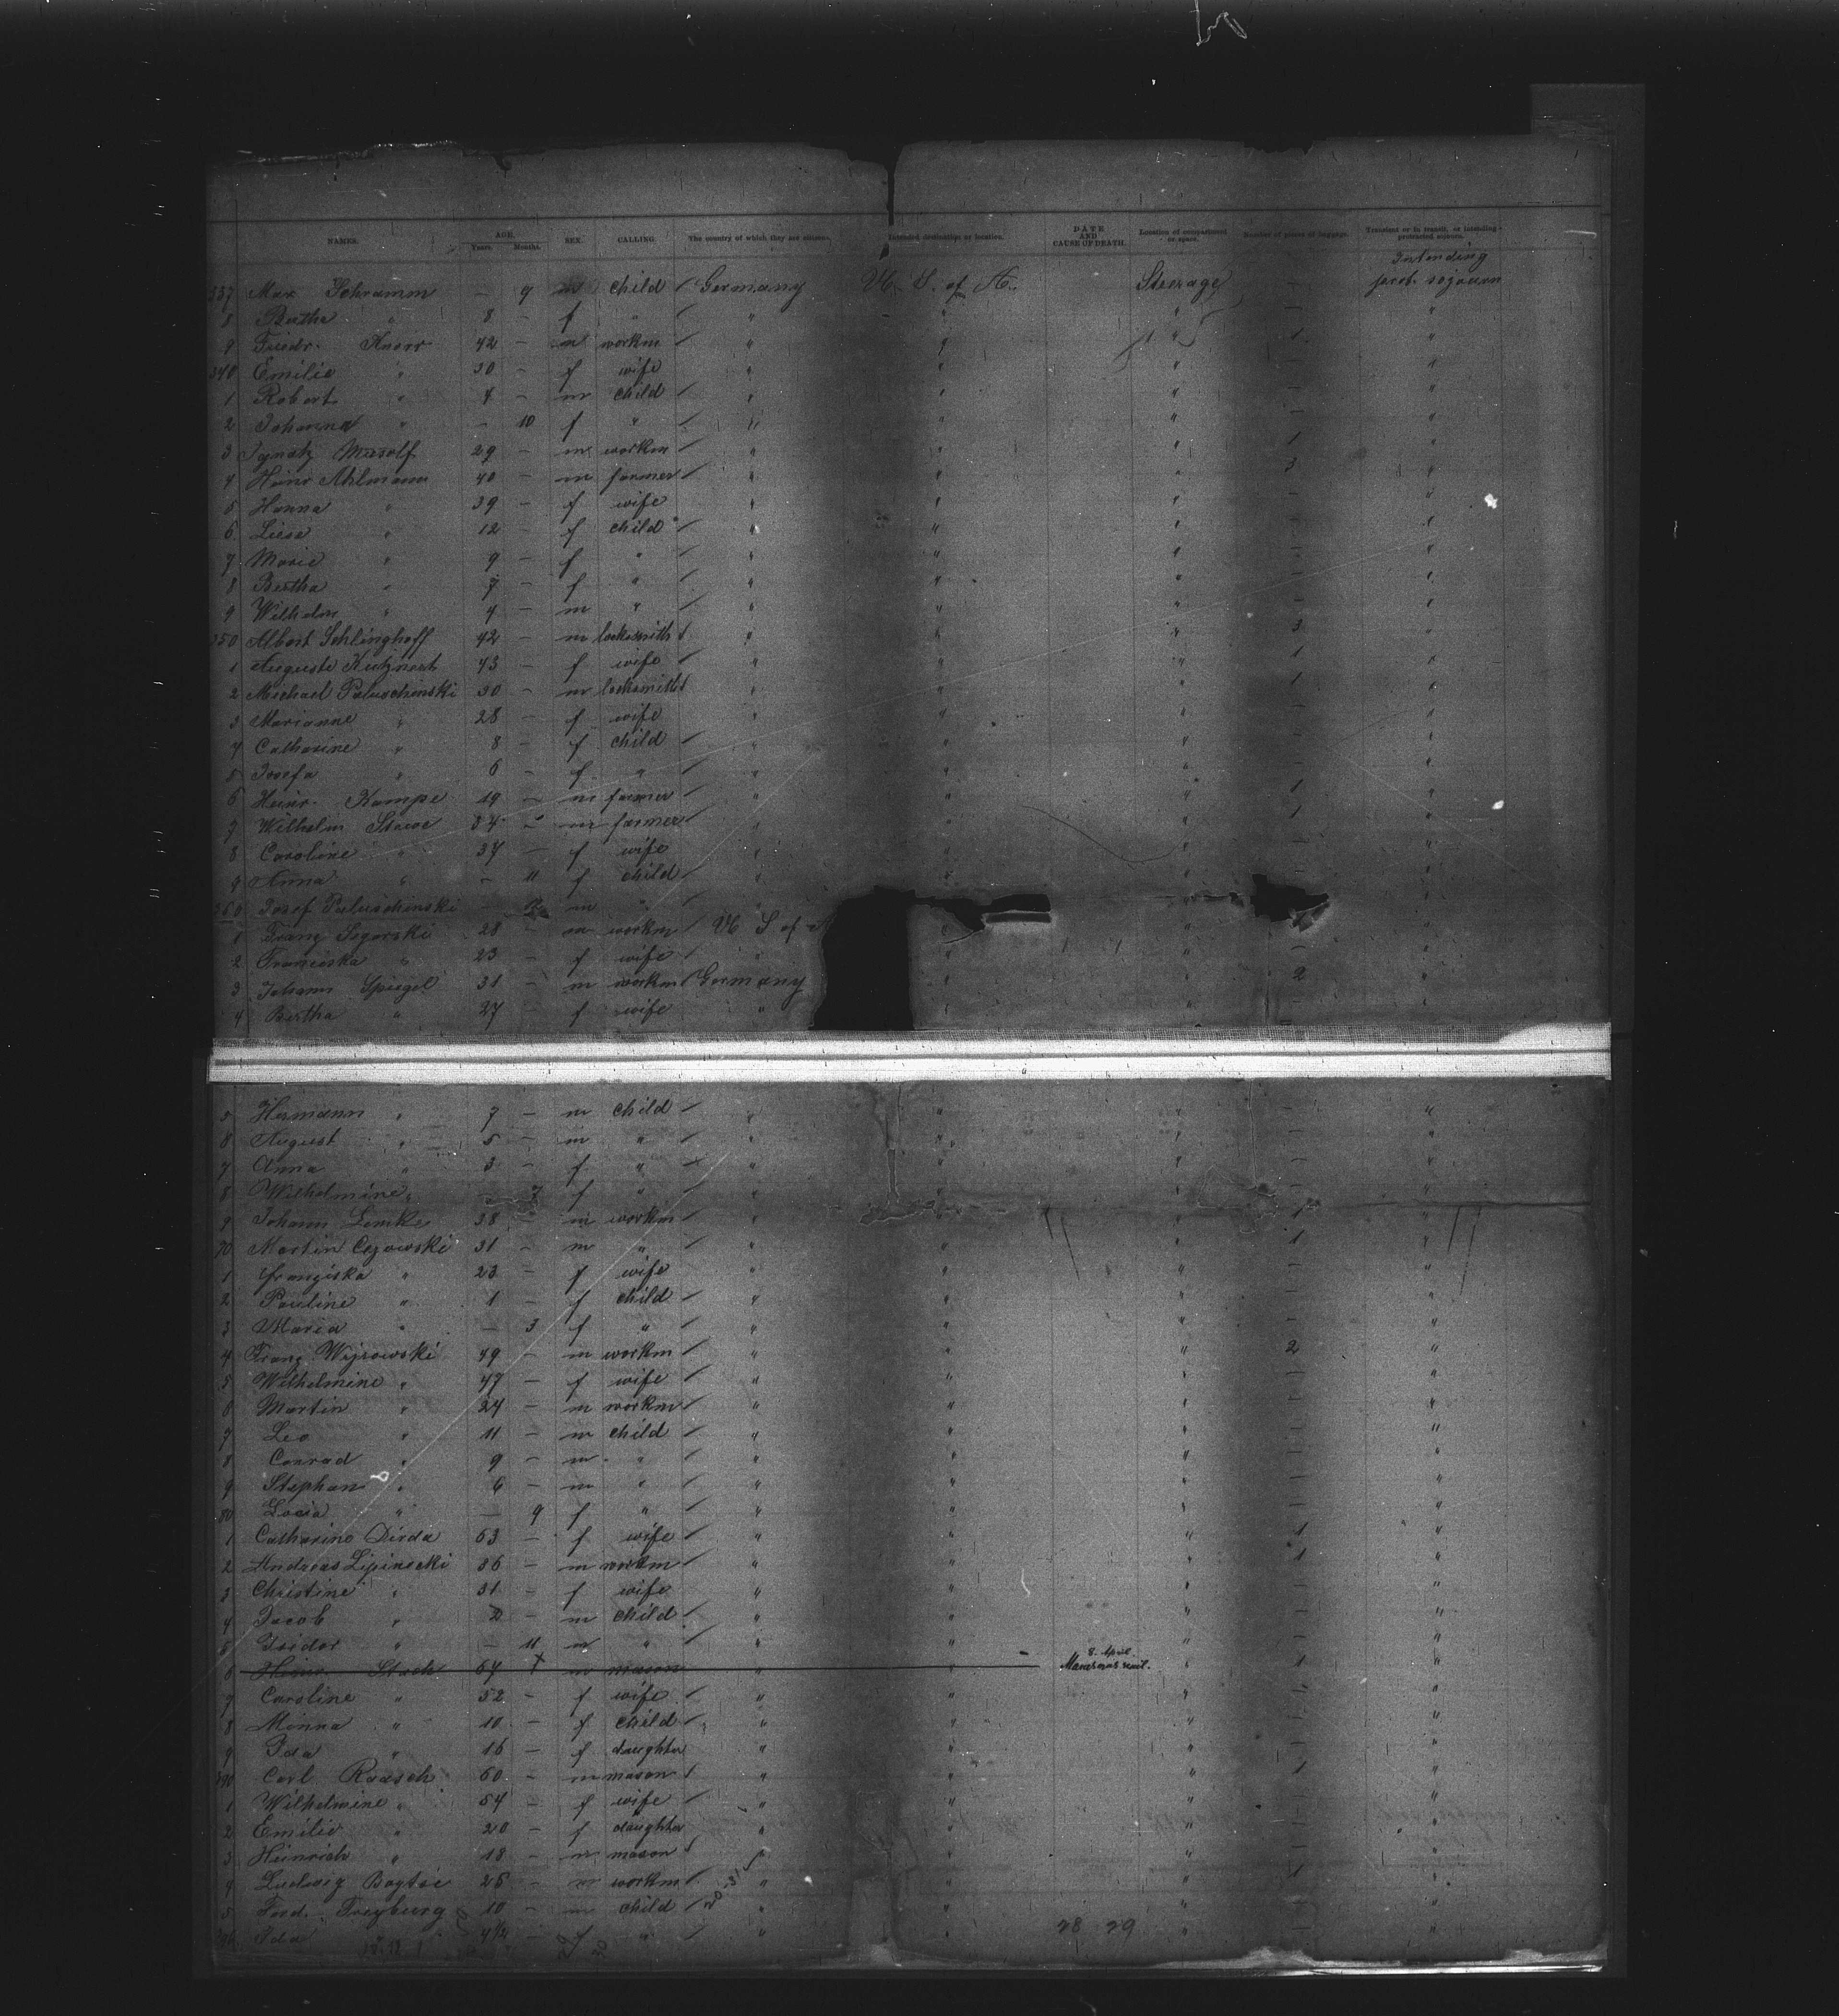 NAMES. AGE. Years. Months. SEX. CALLING. The country of which they are citizens. Intended destination or location. DATE AND CAUSE OF DEATH. Location of compartment or space. Number of pieces of luggage. Transient or in transit, or intending protracted sojourn.
Intending
337 Max Schramm — 9 m child / Germany U. S. of A. Steerage — prot. sojourn
8 Bertha " 8 — f " / " " " — "
9 Friedr. Knorr 42 — m workm / " " " 1 "
340 Emilie " 30 — f wife " " " — "
1 Robert " 4 — m child / " " " — "
2 Johanna " — 10 f " / " " " — "
3 Ignatz Musolf 29 — m workm / " " " 1 "
4 Heinr Ahlmann 40 — m farmer / " " " 3 "
5 Hanna " 39 — f wife " " " — "
6 Liese " 12 — f child / " " " — "
7 Marie " 9 — f " / " " " — "
8 Bertha " 7 — f " / " " " — "
9 Wilhelm " 4 — m " / " " " — "
350 Albert Schlinghoff 42 — m locksmith / " " " 3 "
1 Auguste Kutznert 43 — f wife / " " " 1 "
2 Michael Paluschinski 30 — m locksmith / " " " 1 "
3 Marianne " 28 — f wife " " " — "
4 Catharine " 8 — f child / " " " — "
5 Josefa " 6 — f " / " " " — "
6 Heinr. Kampe 19 — m farmer / " " " 1 "
7 Wilhelm Stawe 34 — m farmer / " " " 1 "
8 Caroline " 37 — f wife " " " — "
9 Anna " — 11 f child / " " — "
360 Josef Paluschinski — m " "
1 Franz Segorski 28 — m workm / U S of A " "
2 Franciska " 23 — f wife / " " — "
3 Johann Spiegel 31 — m workm / Germany " 2 "
4 Bertha " 27 — f wife " " — "
5 Hermann " 7 — m child / " " " — "
6 August " 5 — m " / " " " — "
7 Anna " 3 — f " / " " " — "
8 Wilhelmine " — 7 f " / " " " — "
9 Johann Lemke 38 — m workm / " " " 1 "
70 Martin Czowski 31 — m " / " " " 1 "
1 Franziska " 23 — f wife " " " — "
2 Pauline " 1 — f child / " " " — "
3 Maria " — 3 f " / " " " — "
4 Franz Wyrowski 49 — m workm / " " " 2 "
5 Wilhelmine " 47 — f wife / " " " — "
6 Martin " 24 — m workm / " " " — "
7 Leo " 11 — m child / " " " — "
8 Conrad " 9 — m " / " " " — "
9 Stephan " 6 — m " / " " " — "
80 Lucia " — 9 f " / " " " — "
1 Catharine Dirda 63 — f wife / " " " 1 "
2 Andreas Lipinski 36 — m workm / " " " 1 "
3 Christine " 31 — f wife " " " — "
4 Jacob " 2 — m child / " " " — "
5 Isidor " — 11 m " / " " " — "
8. April
6 Heinr. Stach 57 X m mason " " " 1 "
7 Caroline " 52 — f wife " " " — "
8 Minna " 10 — f child / " " " — "
9 Ida " 16 — f daughter " " " — "
390 Carl Raasch 60 — m mason / " " " 1 "
1 Wilhelmine " 54 — f wife / " " " — "
2 Emilie " 20 — f daughter " " " — "
3 Heinrich " 18 — m mason / " " " — "
4 Ludwig 26 — m workm / " " " 1 "
5 Ferd. Freyburg 10 — m child / " " " — "
Ida 4½ — f " " " — "
28 29